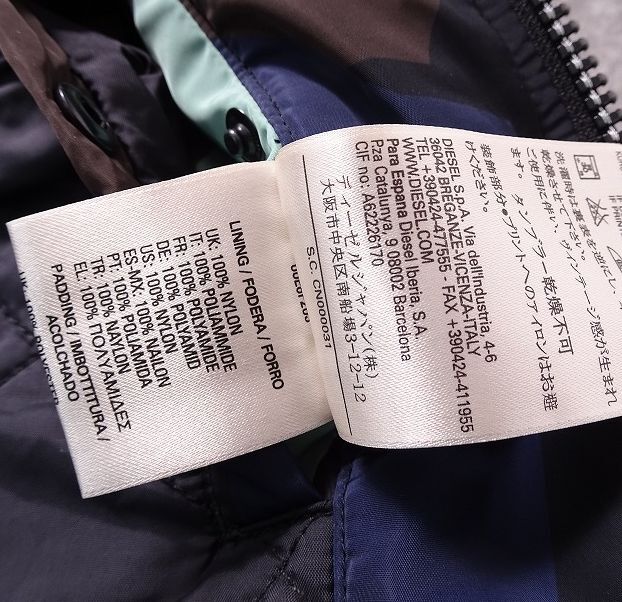 LINING / FODERA / FORRO
UK: 100% NYLON
IT: 100% POLIAMMIDE
FR: 100% POLYAMIDE
DE: 100% POLYAMID
US: 100% NYLON
ES-MX: 100% NAILON
PT: 100% POLIAMIDA
TR: 100% NAYLON
EL: 100% ΠΟΛΥΑΜΙΔΕΣ
PADDING / IMBOTTITURA /
ACOLCHADO
洗濯時は裏表を逆にし、
乾燥させて下さい。ヴィンテージ感が生まれ
ご使用に伴い、
ます。タンブラー乾燥不可
装飾部分・プリントへのアイロンはお避
けください。
DIESEL S.P.A. Via dell'Industria, 4-6
36042 BREGANZE-VICENZA-ITALY
TEL +390424-477555 - FAX +390424-411955
WWW.DIESEL.COM
Para Espana Diesel Iberia, S.A.
Pza Catalunya, 9 08002 Barcelona
CIF no: A62226170
ディーゼルジャパン(株)
大阪市中央区南船場3-12-12
S.C. CN000031